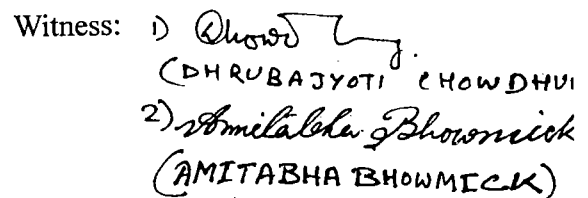 Witness: 1)
(DHRUBAJYOTI CHOWDHUI
2) Amitabha Bhowmick
(AMITABHA BHOWMICK)